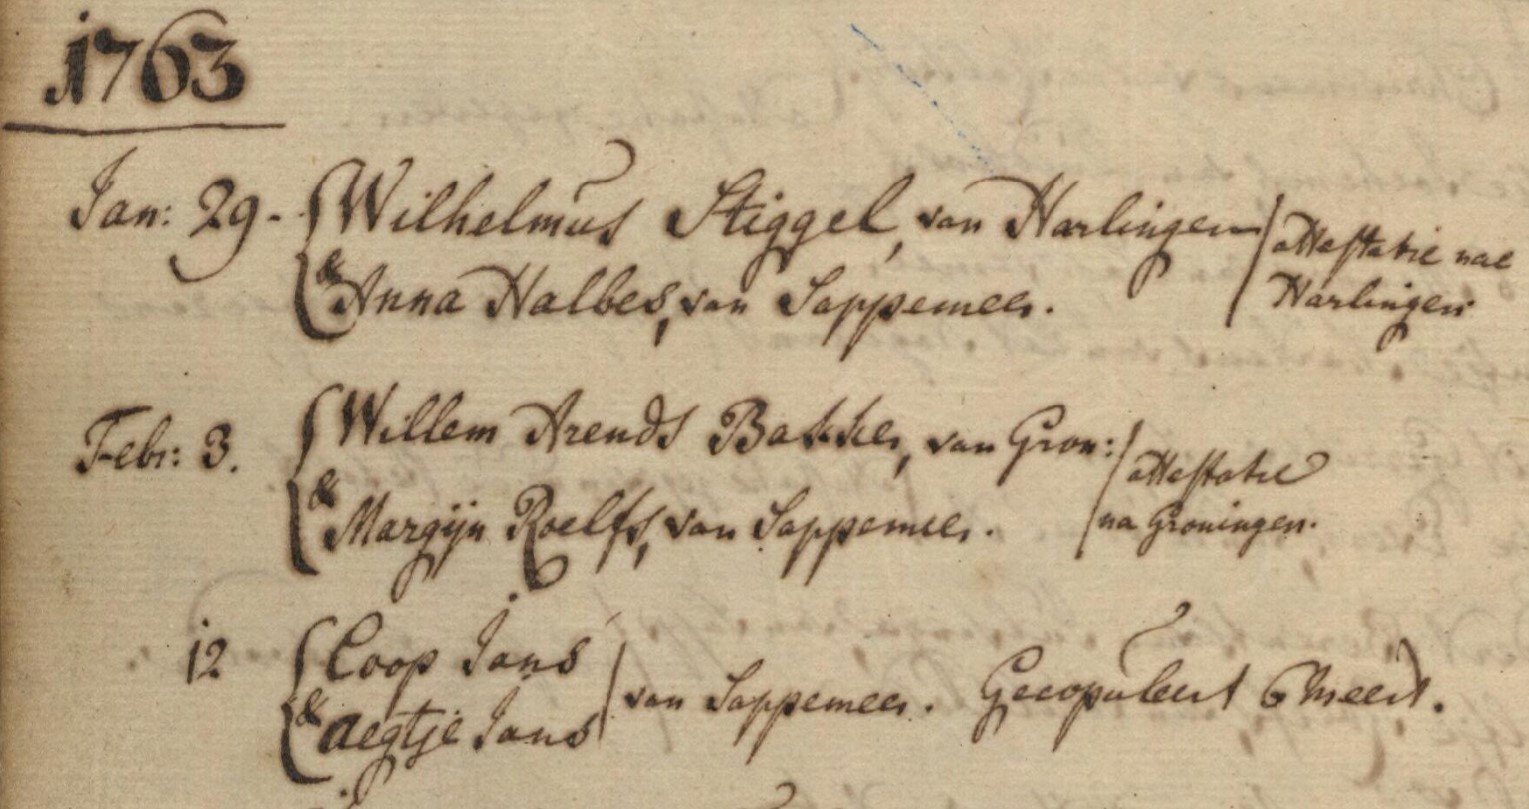 1763
Jan: 29. Wilhelmus Stiggel, van Harlingen attestatie nae
& Anna Halbes, van Sappemeer. Harlingen
Febr: 3. Willem Arends Bakker, van Gron: attestatie
& Margijn Roelfs, van Sappemeer. na Groningen.
12 Coop Jans
& Aegtje Jans van Sappemeer. Gecopuleert 6 Meert.